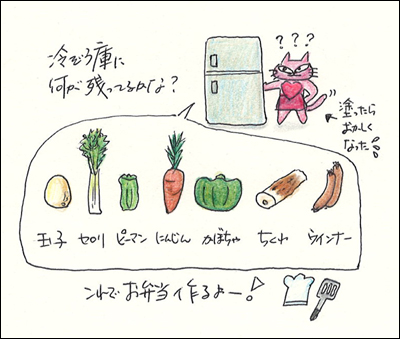 冷ぞう庫に
何が残ってるかな?
???
塗ったら
おかしく
なった
玉子 セロリ ピーマン にんじん かぼちゃ ちくわ ウインナー
これでお弁当作るよー!